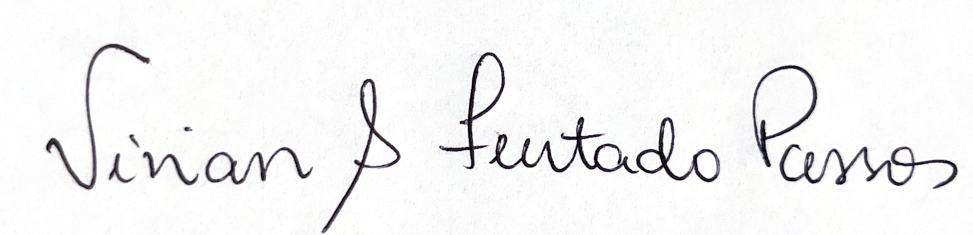 Vivian S Furtado Passos